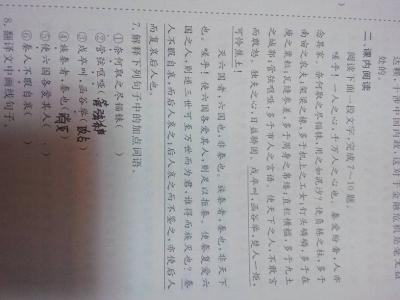 二、课内阅读
阅读下面一段文字，完成7～10题。
嗟乎！一人之心，千万人之心也。秦爱纷奢，人亦
念其家。奈何取之尽锱铢，用之如泥沙？使负栋之柱，多于
南亩之农夫；架梁之椽，多于机上之工女；钉头磷磷，多于在
庾之粟粒；瓦缝参差，多于周身之帛缕；直栏横槛，多于九土
之城郭；管弦呕哑，多于市人之言语。使天下之人，不敢言
而敢怒。独夫之心，日益骄固。戍卒叫，函谷举，楚人一炬，
可怜焦土！
灭六国者，六国也，非秦也。族秦者，秦也，非天下
也。嗟乎！使六国各爱其人，则足以拒秦。使秦复爱六
国之人，则递三世可至万世而为君，谁得而族灭也？秦
人不暇自哀，而后人哀之；后人哀之而不鉴之，亦使后人
而复哀后人也。
7.解释下列句子中的加点词语。
①奈何取之尽锱铢（ ）
②管弦呕哑（ ）
③戍卒叫，函谷举（ ）
④族秦者，秦也（ ）
⑤使六国各爱其人（ ）
⑥秦人不暇自哀（ ）
8.翻译文中画线句子。